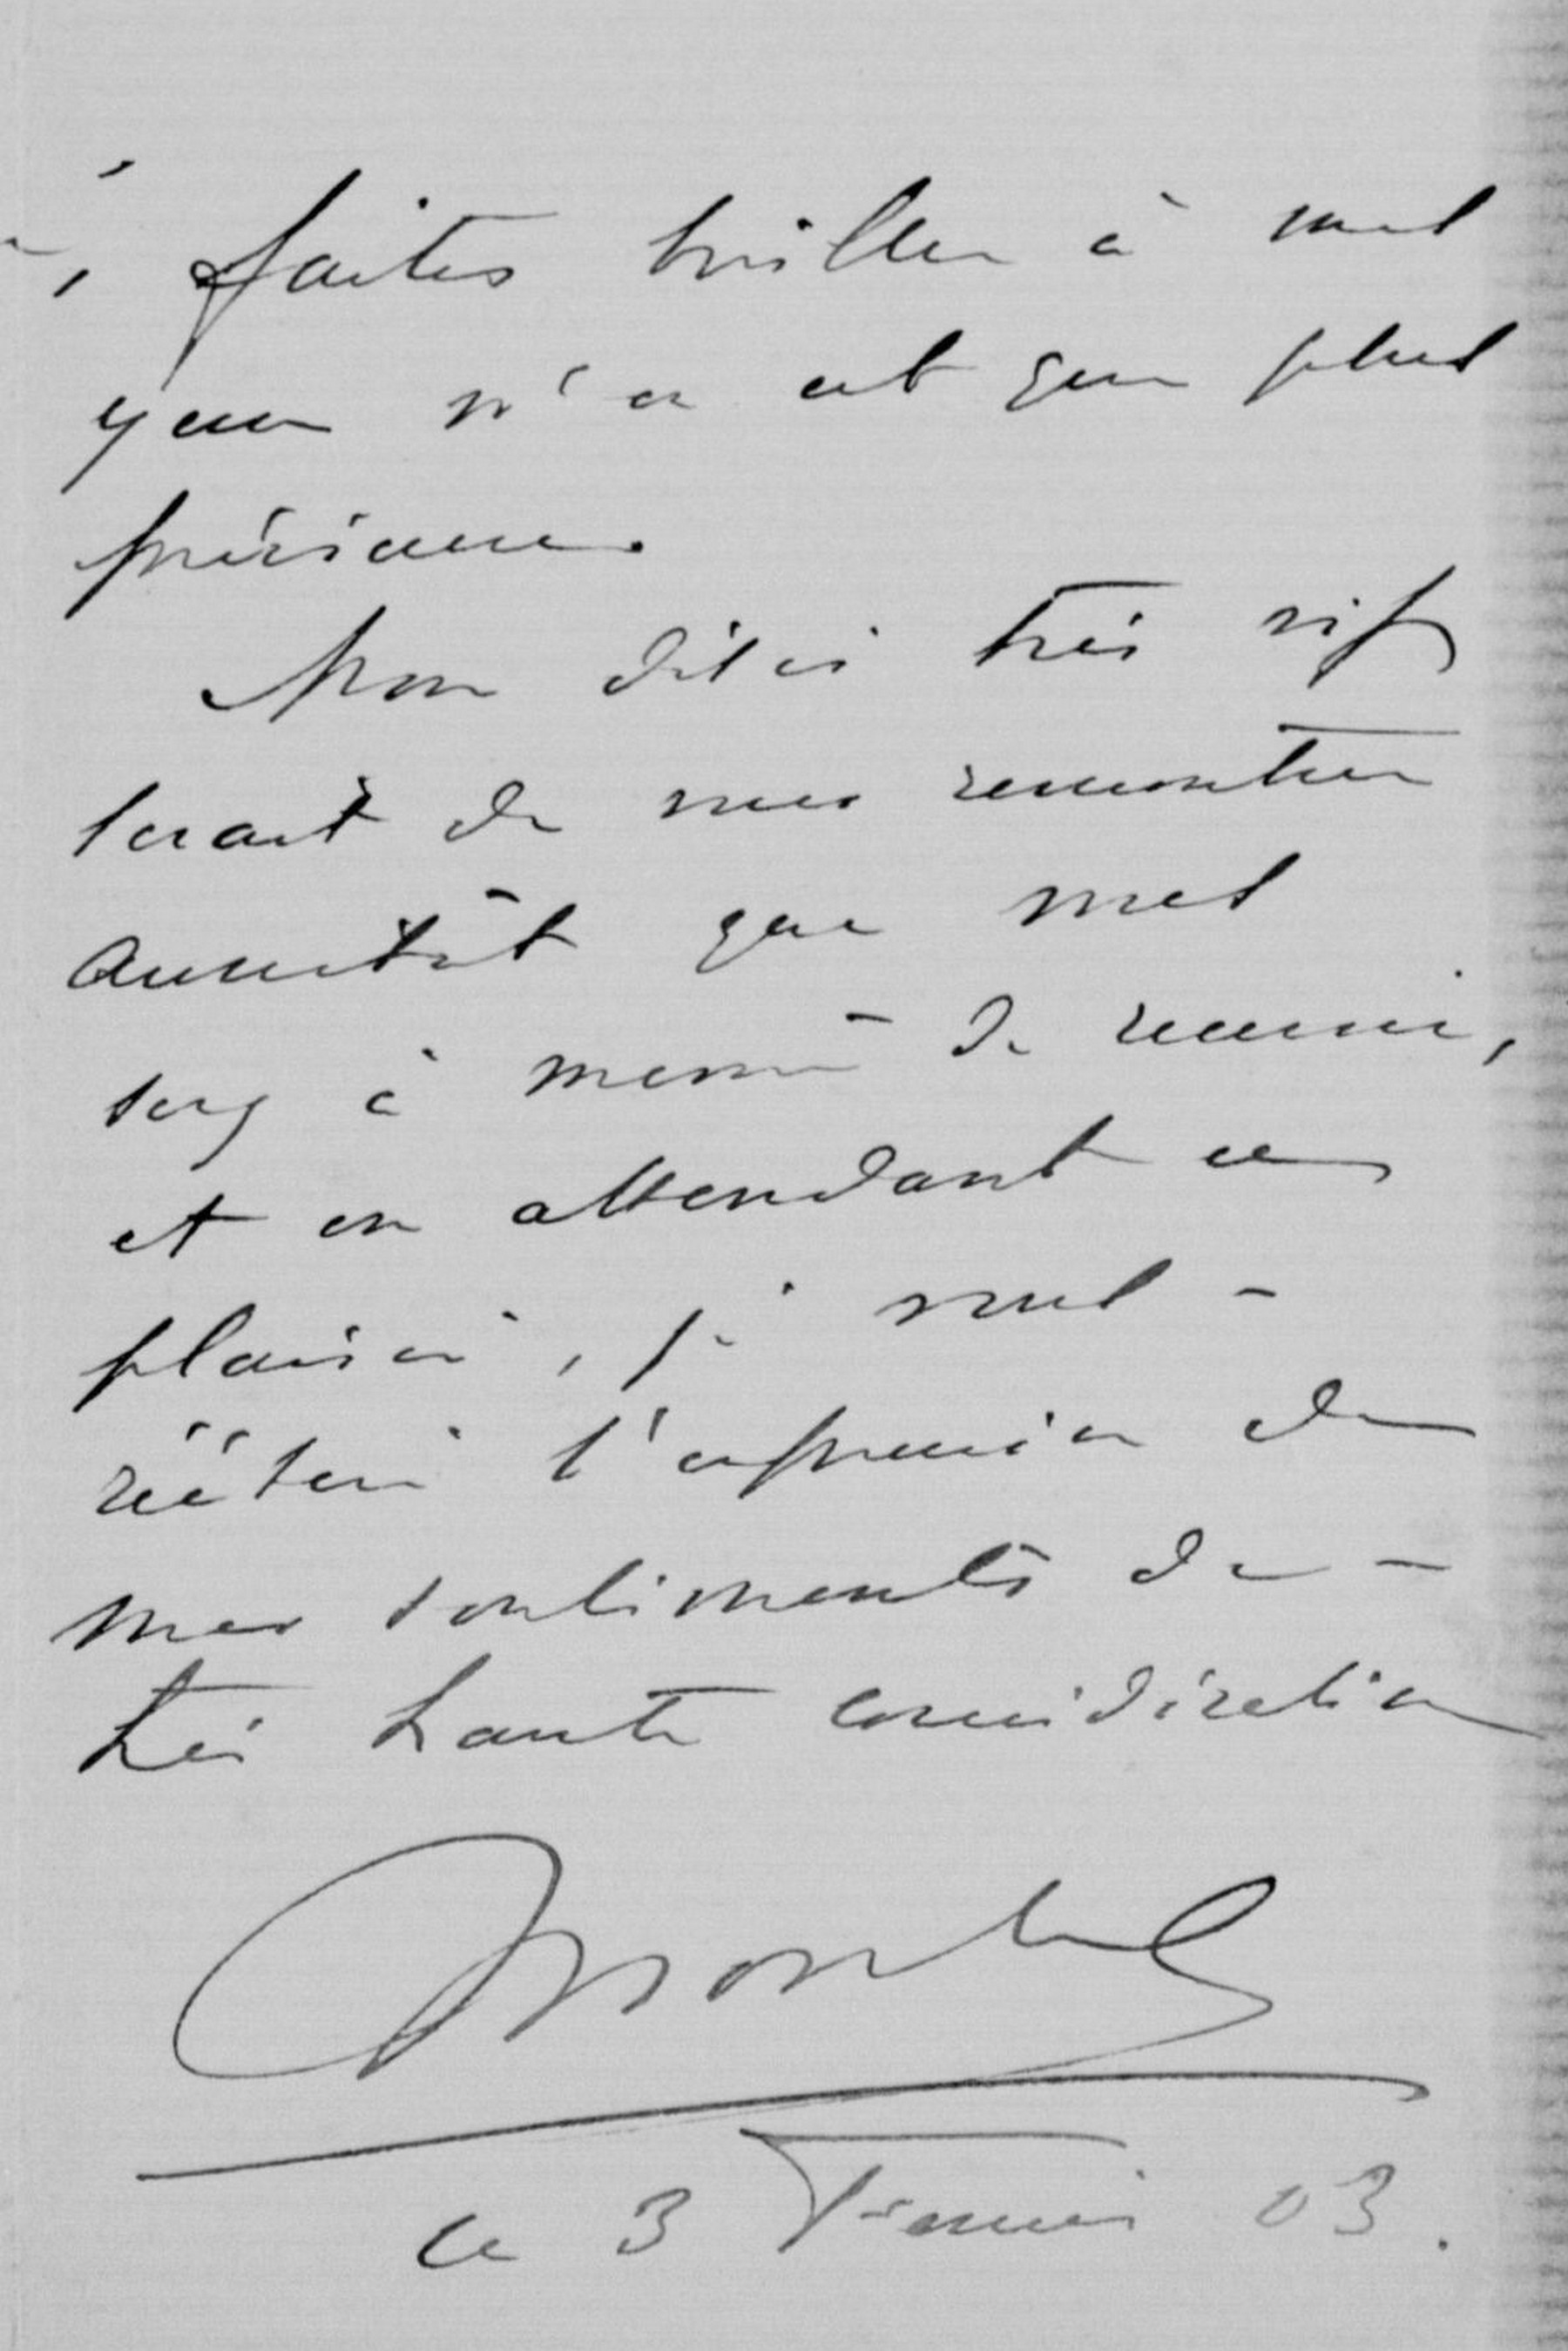 faites briller à mes
yeux n'en est que plus
précieuse.
Mon désir très vif
serait de vous rencontrer
aussitôt que vous
serez à même de recevoir,
et en attendant ce
plaisir, je vous
réitère l'expression de
mes sentiments de
très haute considération
le 3 Février 03.